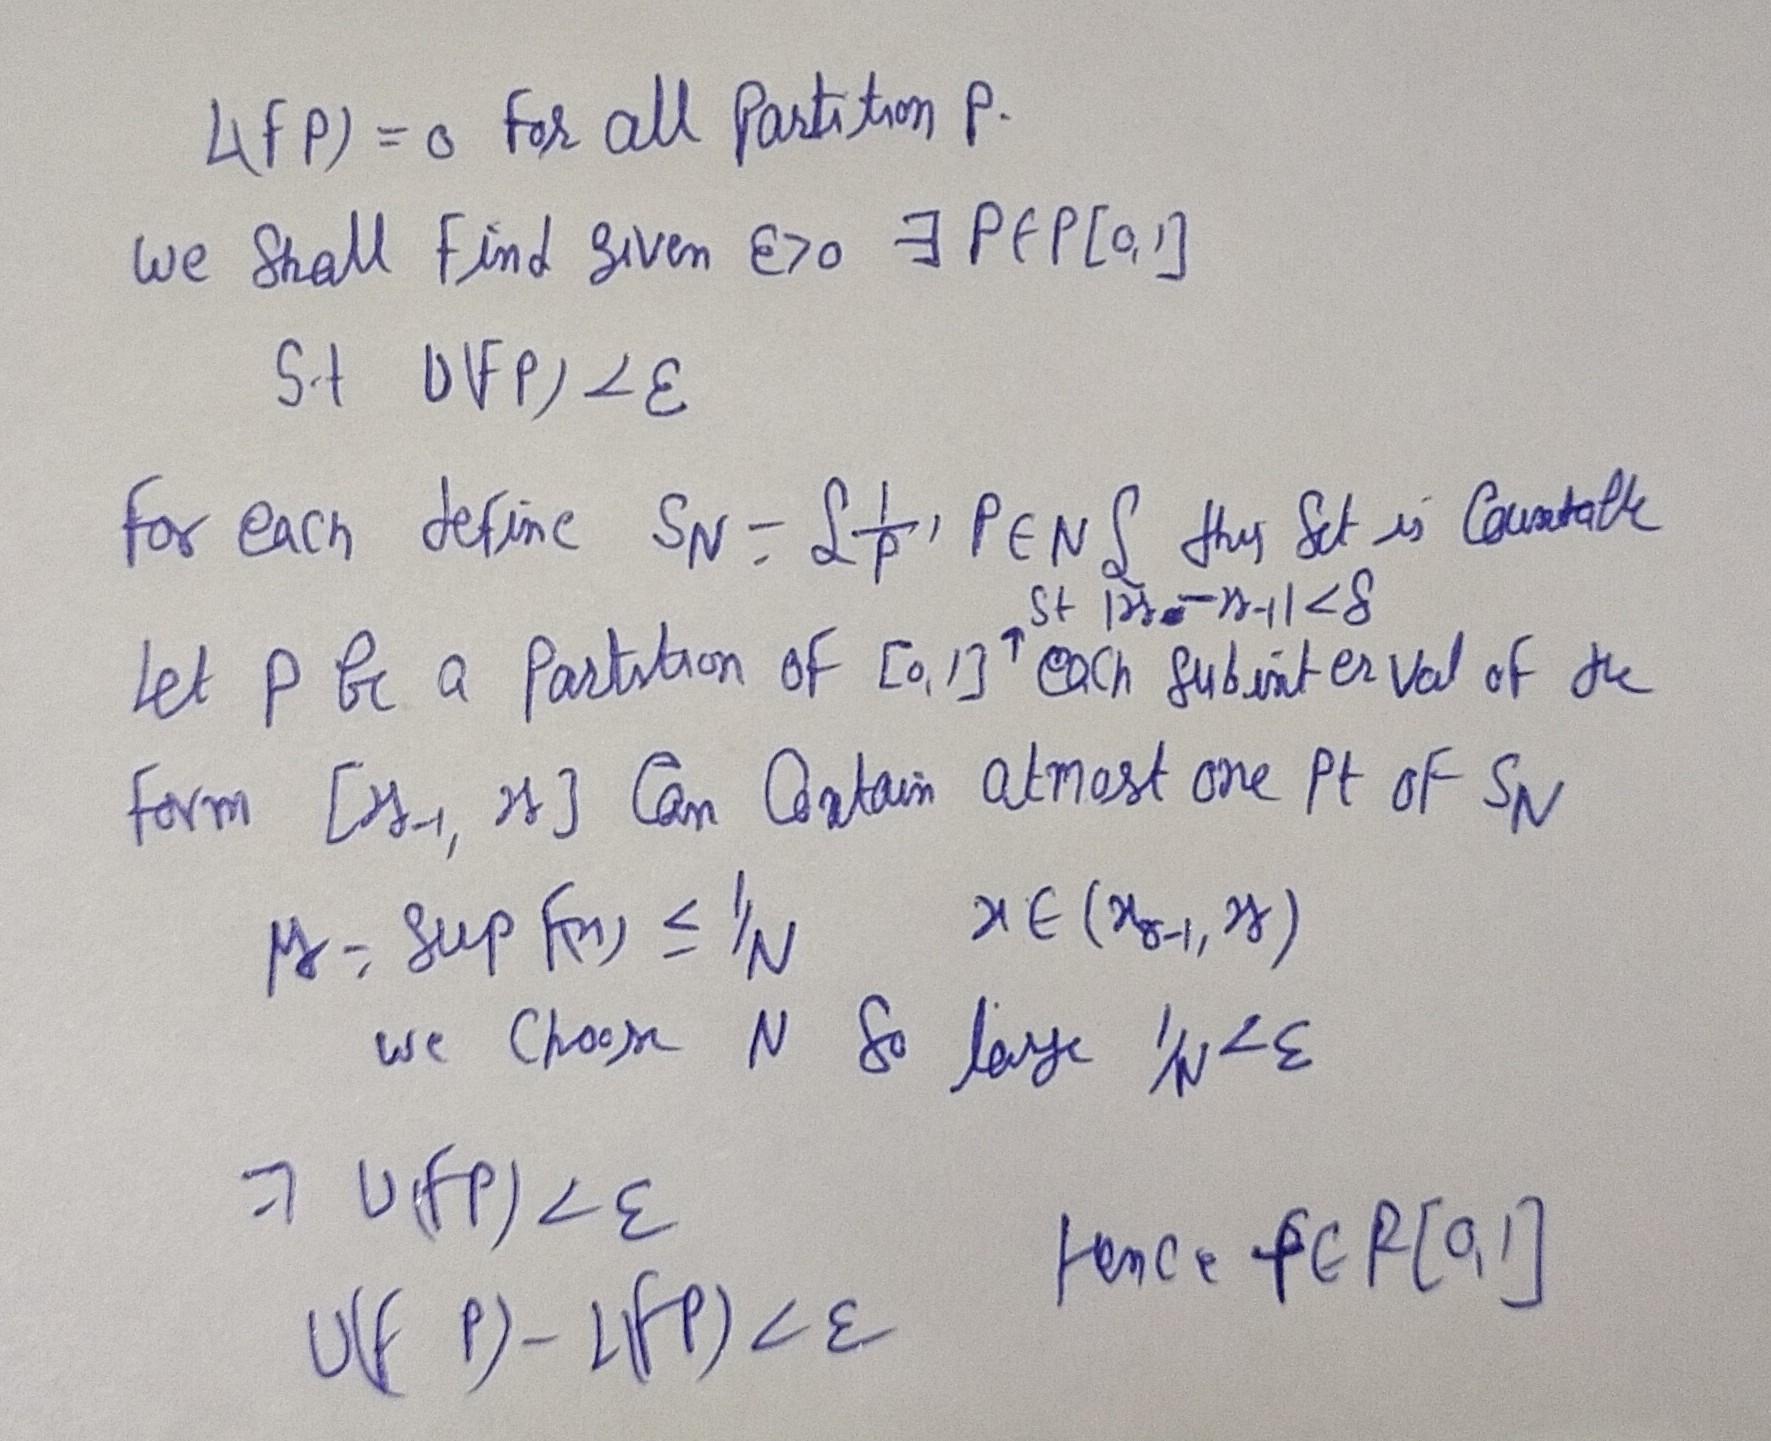 L(f P) = 0 for all Partition P.
we Shall Find given ε>0 ∃ P∈P[0,1]
S.t U(F P) <ε
for each define SN = {1/p, P∈N} this Set is Countable
St |xr - xr-1| <δ
Let P be a Partition of [0,1] ↑ each Subinterval of the
form [xr-1, xr] Can Contain atmost one Pt of SN
Mr = Sup f(x) ≤ 1/N x ∈ (xr-1, xr)
we Choose N So large 1/N <ε
⇒ U(f P) <ε
Hence f∈R[0,1]
U(f P) - L(f P) <ε